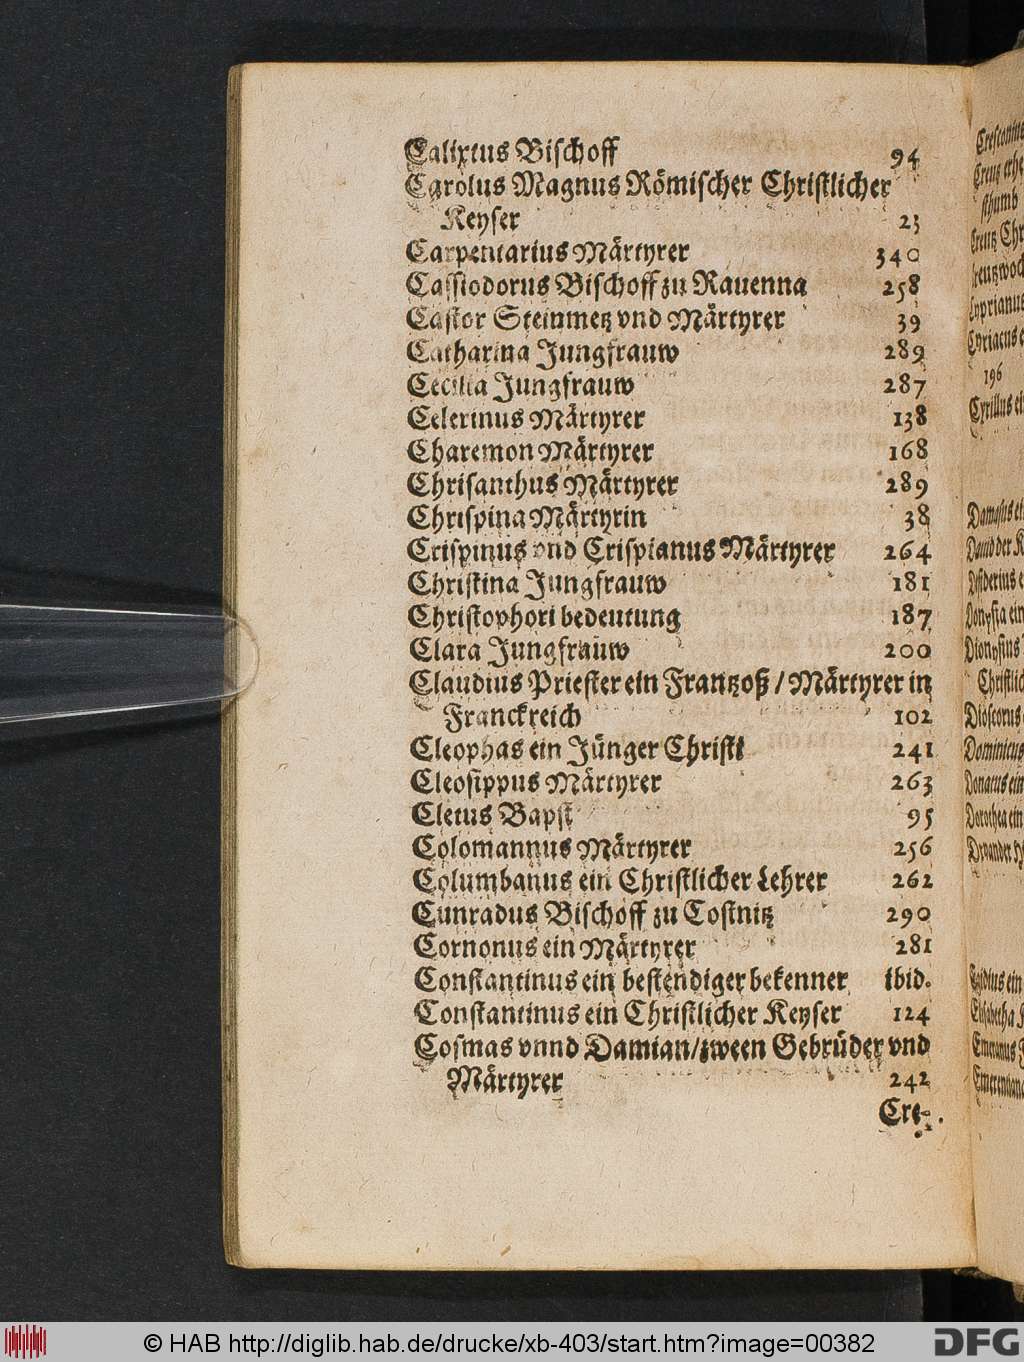 Calixtus Bischoff 94
Carolus Magnus Römischer Christlicher
Keyser 23
Carpentarius Märtyrer 340
Cassiodorus Bischoff zu Rauenna 258
Castor Steinmetz vnd Märtyrer 39
Catharina Jungfrauw 289
Cecilia Jungfrauw 287
Celerinus Märtyrer 138
Charemon Märtyrer 168
Chrisanthus Märtyrer 289
Chrispina Märtyrin 38
Crispinus vnd Crispianus Märtyrer 264
Christina Jungfrauw 181
Christophori bedeutung 187
Clara Jungfrauw 200
Claudius Priester ein Frantzoß / Märtyrer in
Franckreich 102
Cleophas ein Jünger Christi 241
Cleosippus Märtyrer 263
Cletus Bapst 95
Colomannus Märtyrer 256
Columbanus ein Christlicher Lehrer 262
Cunradus Bischoff zu Costnitz 290
Cornonus ein Märtyrer 281
Constantinus ein bestendiger bekenner ibid.
Constantinus ein Christlicher Keyser 124
Cosmas vnnd Damian/zween Gebrüder vnd
Märtyrer 242
Cre-
196
© HAB http://diglib.hab.de/drucke/xb-403/start.htm?image=00382
DFG